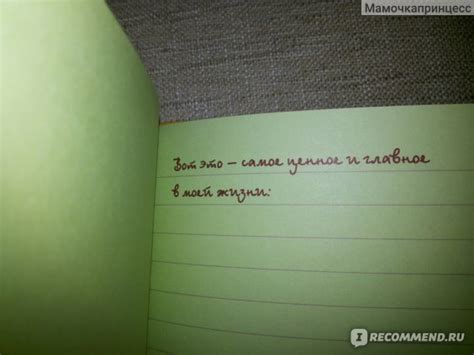 Мамочкапринцесс
Вот это – самое ценное и главное
в моей жизни:
I RECOMMEND.RU